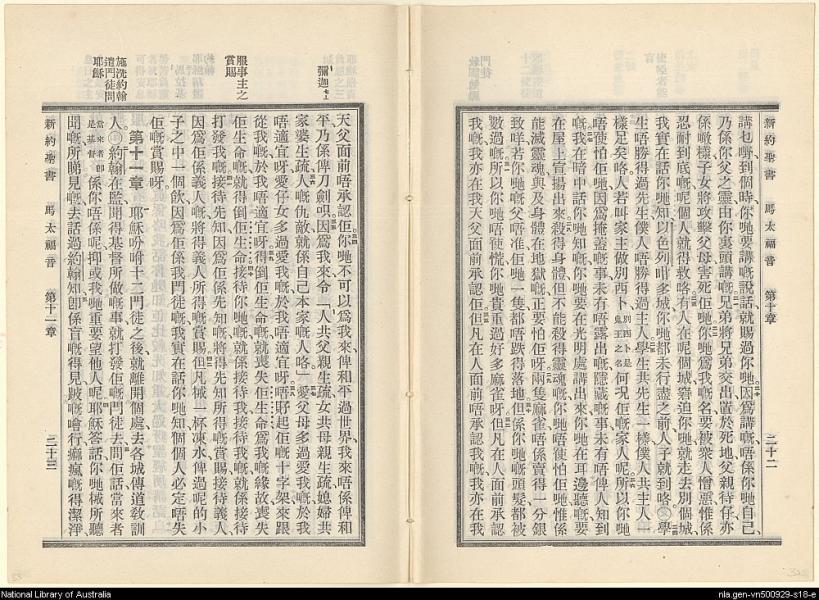 新約聖書 馬太福音 第十章 二十二
講乜嘢到個時你哋要講嘅說話就賜過你哋因爲講嘅唔係你哋自己
乃係你父之靈由你裏頭講嘅兄弟將兄弟交出置於死地父親待仔亦
係噉樣子女將攻擊父母害死佢哋你哋爲我嘅名要被衆人憎惡惟係
忍耐到底嘅呢個人就得救咯有人在呢個城窘迫你哋就走去別個城
我實在話你哋知以色列咁多城你哋都未行盡之前人子就到咯學
生唔勝得過先生僕人唔勝得過主人學生共先生一樣僕人共主人一
樣足矣咯人若叫家主做別西卜別西卜是鬼王之名何况佢嘅家人呢所以你哋
唔使怕佢哋因爲掩蓋嘅事未有唔露出嘅隱藏嘅事未有唔俾人知到
嘅我在暗中話你哋知你哋要在光明處講出來你哋在耳邊聽嘅要
在屋上宣揚出來殺得身體但不能殺得靈魂嘅你哋唔使怕佢哋惟係
能滅靈魂與及身體在地獄嘅正要怕佢呀兩隻麻雀唔係賣得一分銀
致咩若你哋嘅父唔准佢哋一隻都唔跌得落地但係你哋嘅頭髮都被
數過嘅所以你哋唔使慌你哋貴重過好多麻雀呀但凡在人面前承認
我嘅我亦在我天父面前承認佢但凡在人面前唔承認我嘅我亦在我
彌迦七
服事主之
賞賜
施洗約翰
遣門徒問
耶穌
天父面前唔承認佢你哋不可以爲我來俾和平過世界我來唔係俾和
平乃係俾刀劍呮因爲我來令人共父親生疏女共母親生疏媳婦共
家婆生疏人嘅仇敵就係自己本家嘅人咯愛父母多過愛我嘅於我
唔適宜呀愛仔女多過愛我嘅於我唔適宜呀唔䟴起佢嘅十字架來跟
從我嘅於我唔適宜呀得倒佢生命嘅就喪失佢生命爲我嘅緣故喪失
佢生命嘅就得倒佢生命接待你哋嘅就係接待我接待我嘅就係接待
打發我嘅接待先知因爲佢係先知嘅將得先知所得嘅賞賜接待義人
因爲佢係義人嘅將得義人所得嘅賞賜但凡械一杯凍水俾過呢的小
子之中一個飲因爲佢係我門徒嘅我實在話你哋知個個人必定唔失
佢嘅賞賜呀
第十一章 耶穌吩咐十二門徒之後就離開個處去各城傳道敎訓
人 約翰在監聞得基督所做嘅事就打發佢嘅門徒去問佢話當來者
當來者卽是基督 係你唔係呢抑或我哋重要望他人呢耶穌答話你哋械所聽
聞嘅所睇見嘅去話過約翰知卽係盲嘅得見跛嘅噲行癲瘋嘅得潔淨
新約聖書 馬太福音 第十一章 二十三
National Library of Australia
nla.gen-vn500929-s18-e